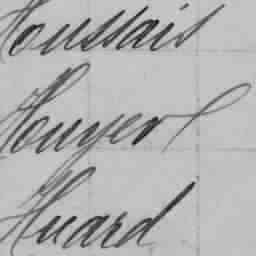 Houssais
Houyer
Huard